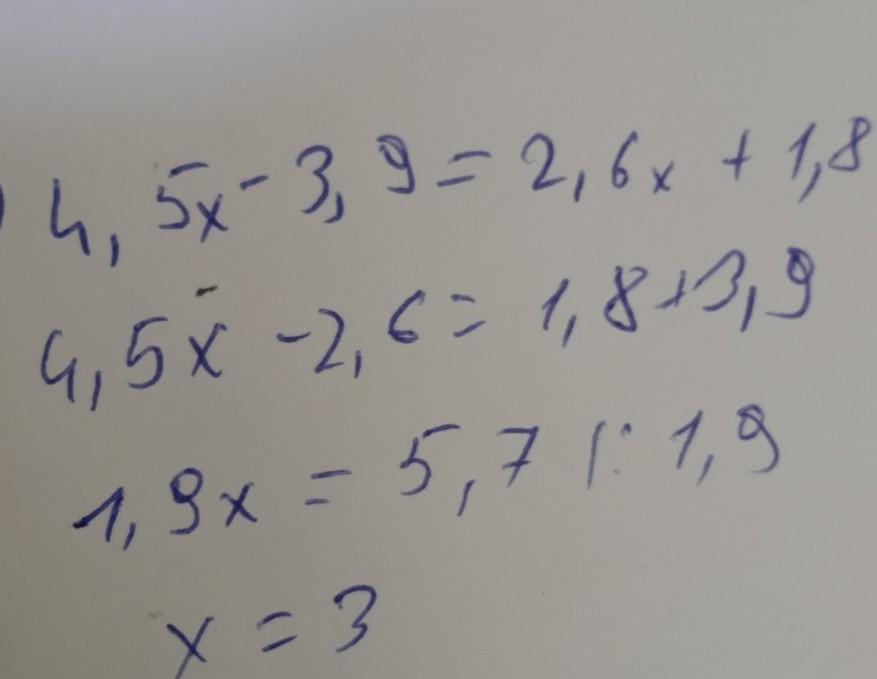 ) 4,5x - 3,9 = 2,6x + 1,8
4,5x - 2,6 = 1,8 + 3,9
1,9x = 5,7 |: 1,9
x = 3